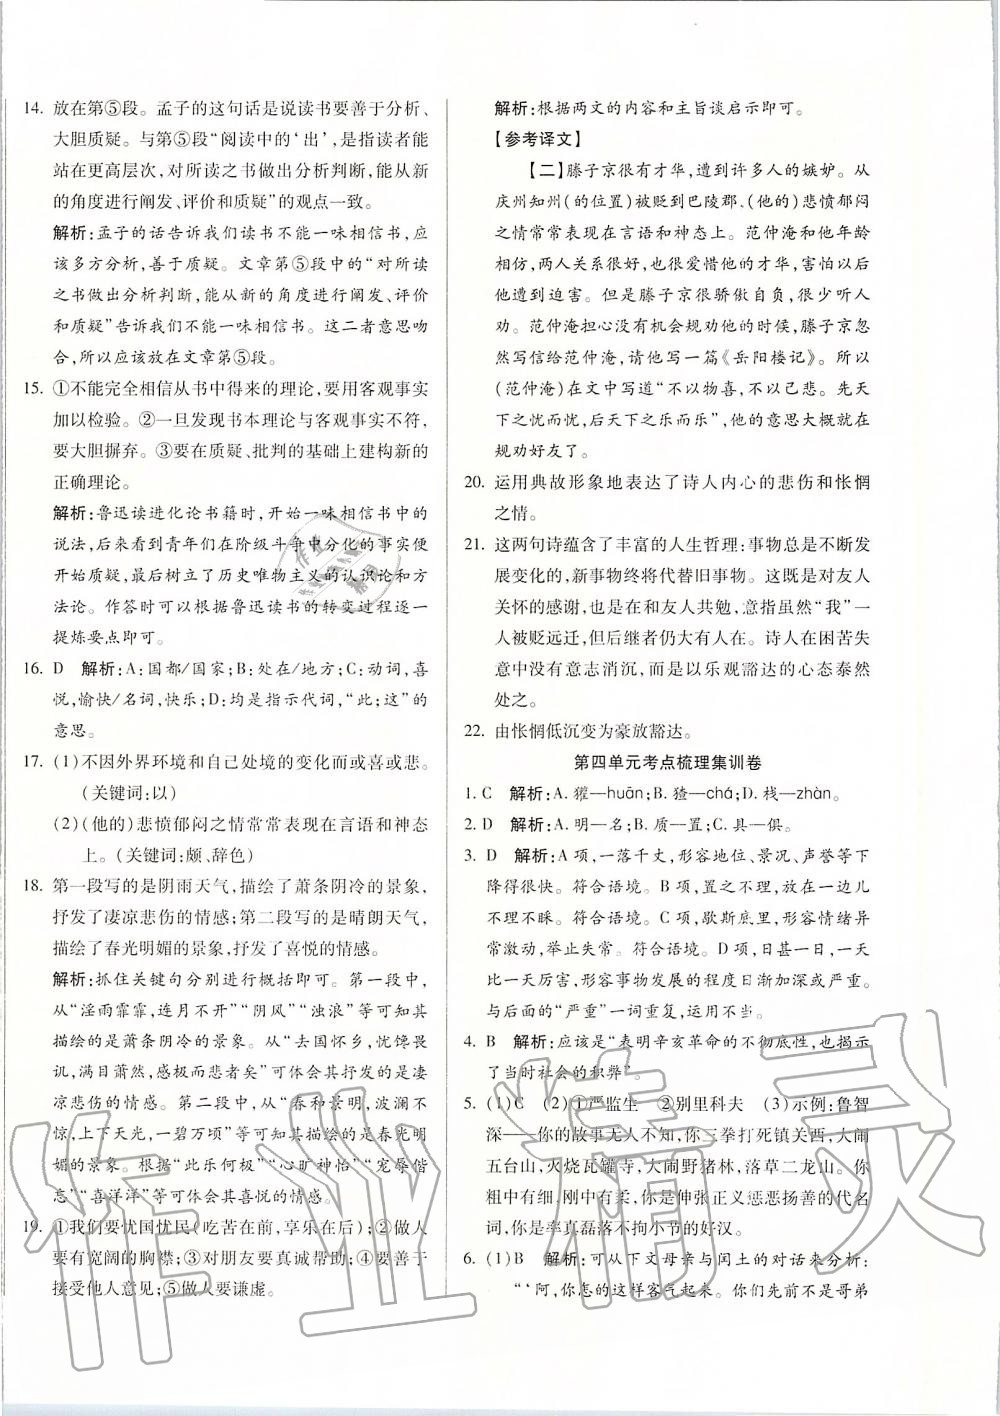 14. 放在第⑤段。孟子的这句话是说读书要善于分析、
大胆质疑。与第⑤段“阅读中的‘出’,是指读者能
站在更高层次,对所读之书做出分析判断,能从新
的角度进行阐发、评价和质疑”的观点一致。
解析:孟子的话告诉我们读书不能一味相信书,应
该多方分析,善于质疑。文章第⑤段中的“对所读
之书做出分析判断,能从新的角度进行阐发、评价
和质疑”告诉我们不能一味相信书。这二者意思吻
合,所以应该放在文章第⑤段。
15. ①不能完全相信从书中得来的理论,要用客观事实
加以检验。②一旦发现书本理论与客观事实不符,
要大胆摒弃。③要在质疑、批判的基础上建构新的
正确理论。
解析:鲁迅读进化论书籍时,开始一味相信书中的
说法,后来看到青年们在阶级斗争中分化的事实便
开始质疑,最后树立了历史唯物主义的认识论和方
法论。作答时可以根据鲁迅读书的转变过程逐一
提炼要点即可。
16. D 解析:A:国都/国家;B:处在/地方;C:动词,喜
悦,愉快/名词,快乐;D:均是指示代词,“此;这”的
意思。
17. (1)不因外界环境和自己处境的变化而或喜或悲。
(关键词:以)
(2)(他的)悲愤郁闷之情常常表现在言语和神态
上。(关键词:颇、辞色)
18. 第一段写的是阴雨天气,描绘了萧条阴冷的景象,
抒发了凄凉悲伤的情感;第二段写的是晴朗天气,
描绘了春光明媚的景象,抒发了喜悦的情感。
解析:抓住关键句分别进行概括即可。第一段中,
从“淫雨霏霏,连月不开”“阴风”“浊浪”等可知其
描绘的是萧条阴冷的景象。从“去国怀乡,忧馋畏
讥,满目萧然,感极而悲者矣”可体会其抒发的是凄
凉悲伤的情感。第二段中,从“春和景明,波澜不
惊,上下天光,一碧万顷”等可知其描绘的是春光明
媚的景象。根据“此乐何极”“心旷神怡”“宠辱偕
忘”“喜洋洋”等可体会其喜悦的情感。
19. ①我们要忧国忧民(吃苦在前,享乐在后);②做人
要有宽阔的胸襟;③对朋友要真诚帮助;④要善于
接受他人意见;⑤做人要谦虚。
解析:根据两文的内容和主旨谈启示即可。
【参考译文】
【二】滕子京很有才华,遭到许多人的嫉妒。从
庆州知州(的位置)被贬到巴陵郡、(他的)悲愤郁闷
之情常常表现在言语和神态上。范仲淹和他年龄
相仿,两人关系很好,也很爱惜他的才华,害怕以后
他遭到迫害。但是滕子京很骄傲自负,很少听人
劝。范仲淹担心没有机会规劝他的时候,滕子京忽
然写信给范仲淹,请他写一篇《岳阳楼记》。所以
(范仲淹)在文中写道“不以物喜,不以己悲。先天
下之忧而忧,后天下之乐而乐”,他的意思大概就在
规劝好友了。
20. 运用典故形象地表达了诗人内心的悲伤和怅惘
之情。
21. 这两句诗蕴含了丰富的人生哲理:事物总是不断发
展变化的,新事物终将代替旧事物。这既是对友人
关怀的感谢,也是在和友人共勉,意指虽然“我”一
人被贬远迁,但后继者仍大有人在。诗人在困苦失
意中没有意志消沉,而是以乐观豁达的心态泰然
处之。
22. 由怅惘低沉变为豪放豁达。
第四单元考点梳理集训卷
1. C 解析:A. 獾—huān;B. 猹—chá;D. 栈—zhàn。
2. D 解析:A. 明—名;B. 质—置;C. 具—俱。
3. D 解析:A 项,一落千丈,形容地位、景况、声誉等下
降得很快。符合语境。B 项,置之不理,放在一边儿
不理不睬。符合语境。C 项,歇斯底里,形容情绪异
常激动,举止失常。符合语境。D 项,日甚一日,一天
比一天厉害,形容事物发展的程度日渐加深或严重。
与后面的“严重”一词重复,运用不当。
4. B 解析:应该是“表明辛亥革命的不彻底性,也揭示
了当时社会的积弊”。
5. (1)C (2)①严监生 ②别里科夫 (3)示例:鲁智
深——你的故事无人不知,你三拳打死镇关西,大闹
五台山,火烧瓦罐寺,大闹野猪林,落草二龙山。你
粗中有细,刚中有柔,你是伸张正义惩恶扬善的代名
词,你是率真磊落不拘小节的好汉。
6. (1)B 解析:可从下文母亲与闰土的对话来分析:
“‘阿,你怎的这样客气起来。你们先前不是哥弟
作业精灵